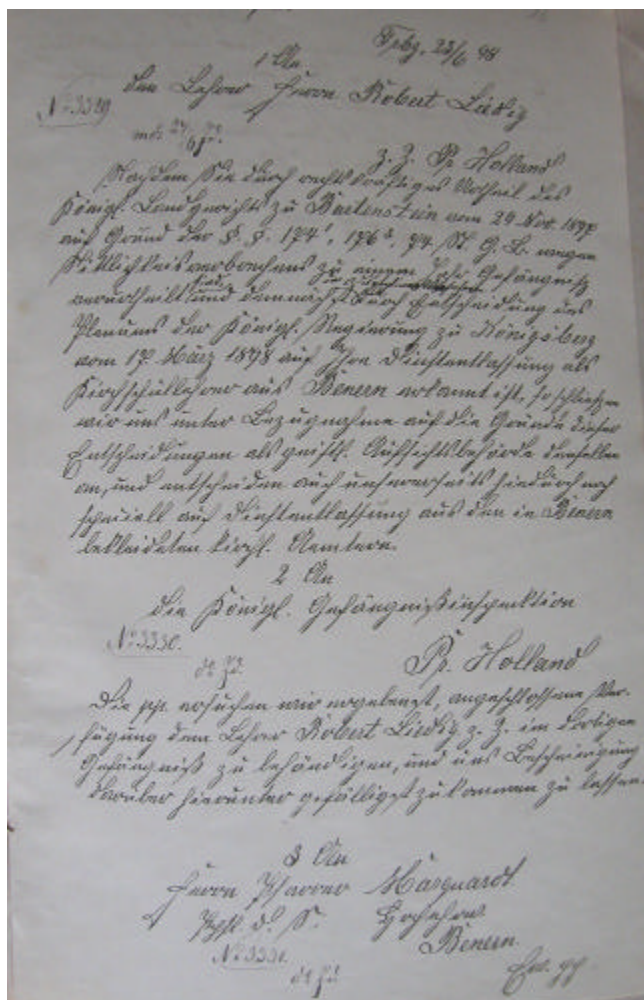 Fbg. 23/6 98
1 An
den Lehrer Herrn Robert Liedig
No 3329
z. Z. Pr. Holland
Nachdem Sie durch rechtskräftiges Urtheil des
Königl. Landgerichts zu Bartenstein vom 29. Nov. 1897
auf Grund der §. §. 174¹, 176³, 74. St. G. B. wegen
Sittlichkeitsverbrechens zu einem Jahr Gefängniß
verurtheilt sind und demnächst durch Entscheidung des
Plenums der Königl. Regierung zu Königsberg
vom 17. März 1898 auf Ihre Dienstentlassung als
Kirchschullehrer aus Benern erkannt ist, so schließen
wir uns unter Bezugnahme auf die Gründe dieser
Entscheidungen als geistl. Aufsichtsbehörde denselben
an, und entscheiden auch unsererseits hiedurch noch
speciell auf Dienstentlassung aus den in Benern
bekleideten kirchl. Aemtern.
2 An
die Königl. Gefängnißinspektion
No 3330.
Pr. Holland
Die pp. ersuchen wir ergebenst, angeschlossene Ver-
fügung dem Lehrer Robert Liedig z. Z. im dortigen
Gefängniß zu behändigen, und uns Bescheinigung
darüber hierunter gefälligst zukommen zu lassen.
3 An
Herrn Pfarrer Marquardt
Hochehrw.
No 3331.
Benern.
Ew. pp